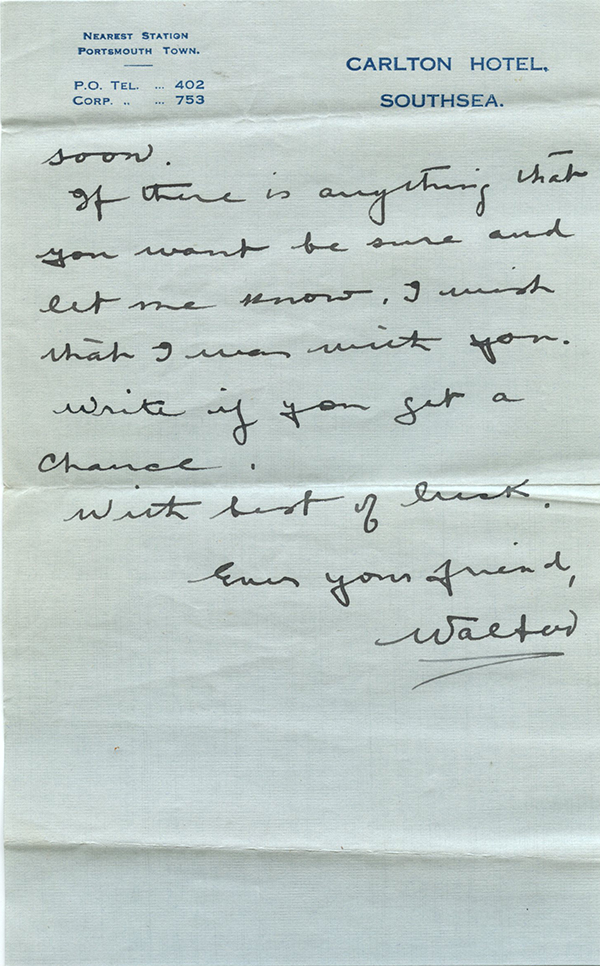 NEAREST STATION
PORTSMOUTH TOWN.
P.O. TEL. ... 402
CORP. „ ... 753
CARLTON HOTEL,
SOUTHSEA.
soon.
If there is anything that
you want be sure and
let me know. I wish
that I was with you.
Write if you get a
chance.
With best of luck.
Ever your friend,
Walter